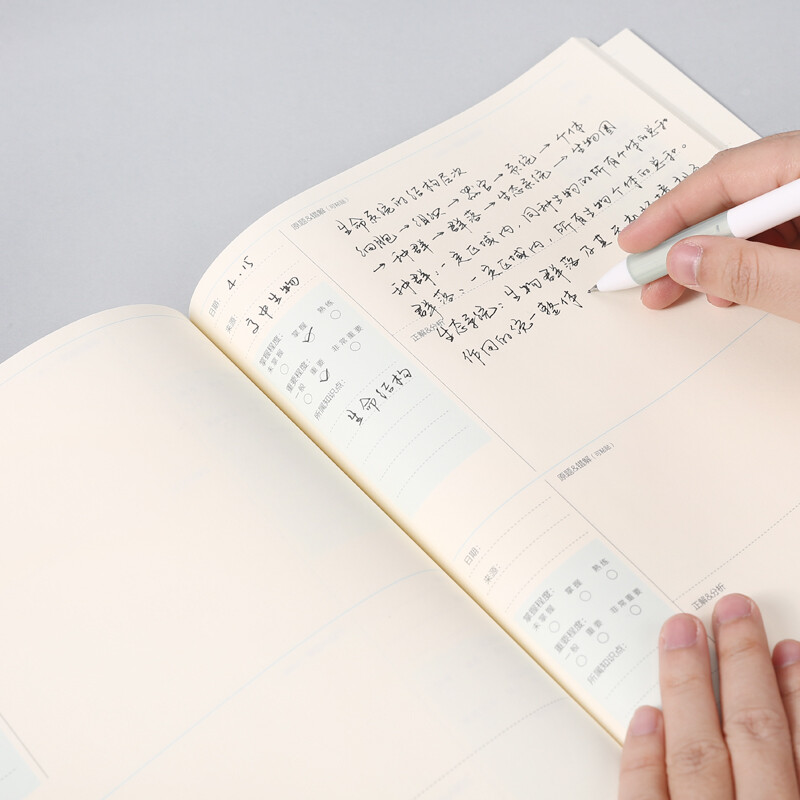 日期：4.15
来源：高中生物
掌握程度：
未掌握 掌握 熟练
重要程度：
一般 重要 非常重要
所属知识点：
生命结构
原题&错解（可粘贴）
生命系统的结构层次
细胞→组织→器官→系统→个体
→种群→群落→生态系统→生物圈
种群：一定区域内，同种生物的所有个体的总和。
群落：一定区域内，所有生物个体的总和.
生态系统：生物群落及其无机环境
正解&分析
作用的统一整体
日期：
来源：
掌握程度：
未掌握 掌握 熟练
重要程度：
一般 重要 非常重要
所属知识点：
原题&错解（可粘贴）
正解&分析